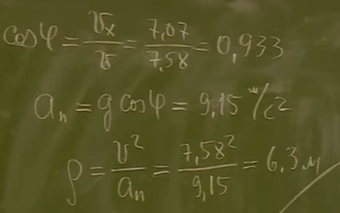 cosφ = υx/υ = 7,07/7,58 = 0,933
an = g cosφ = 9,15 м/с2
ρ = υ²/an = 7,58²/9,15 = 6,3 м